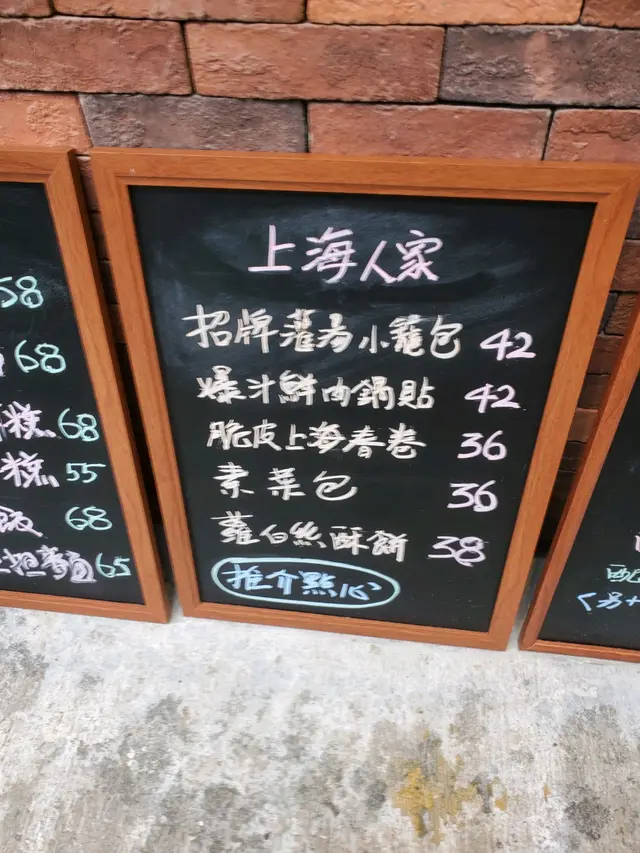 58
68
糕 68
糕 55
飯 68
65
上海人家
招牌灌湯小籠包 42
爆汁鮮肉鍋貼 42
脆皮上海春卷 36
素菜包 36
蘿白絲酥餅 38
推介點心